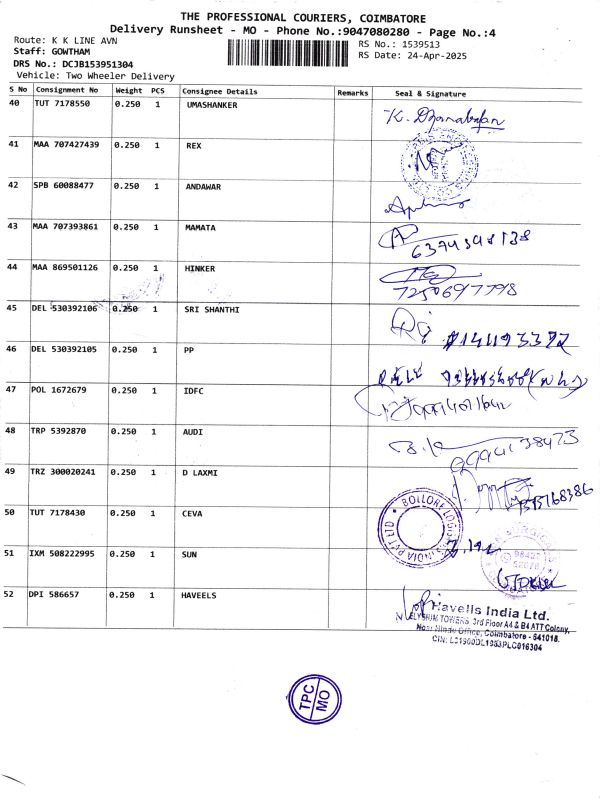 THE PROFESSIONAL COURIERS, COIMBATORE
Delivery Runsheet - MO - Phone No.:9047080280 - Page No.:4
Route: K K LINE AVN
Staff: GOWTHAM
DRS No.: DCJB153951304
Vehicle: Two Wheeler Delivery
RS No.: 1539513
RS Date: 24-Apr-2025
S No Consignment No Weight PCS Consignee Details Remarks Seal & Signature
40 TUT 7178550 0.250 1 UMASHANKER
41 MAA 707427439 0.250 1 REX
42 SPB 60088477 0.250 1 ANDAWAR
43 MAA 707393861 0.250 1 MAMATA
44 MAA 869501126 0.250 1 HINKER
7250697798
45 DEL 530392106 0.250 1 SRI SHANTHI
46 DEL 530392105 0.250 1 PP
47 POL 1672679 0.250 1 IDFC
48 TRP 5392870 0.250 1 AUDI
49 TRZ 300020241 0.250 1 D LAXMI
50 TUT 7178430 0.250 1 CEVA
BOLLORE LOGISTICS INDIA PVT LTD
51 IXM 508222995 0.250 1 SUN
52 DPI 586657 0.250 1 HAVEELS
Havells India Ltd.
ELYSIUM TOWERS, 3rd Floor A4 & B4 ATT Colony,
Near Hindu Office, Coimbatore - 641018.
CIN: L31900DL1983PLC016304
TPC
MO